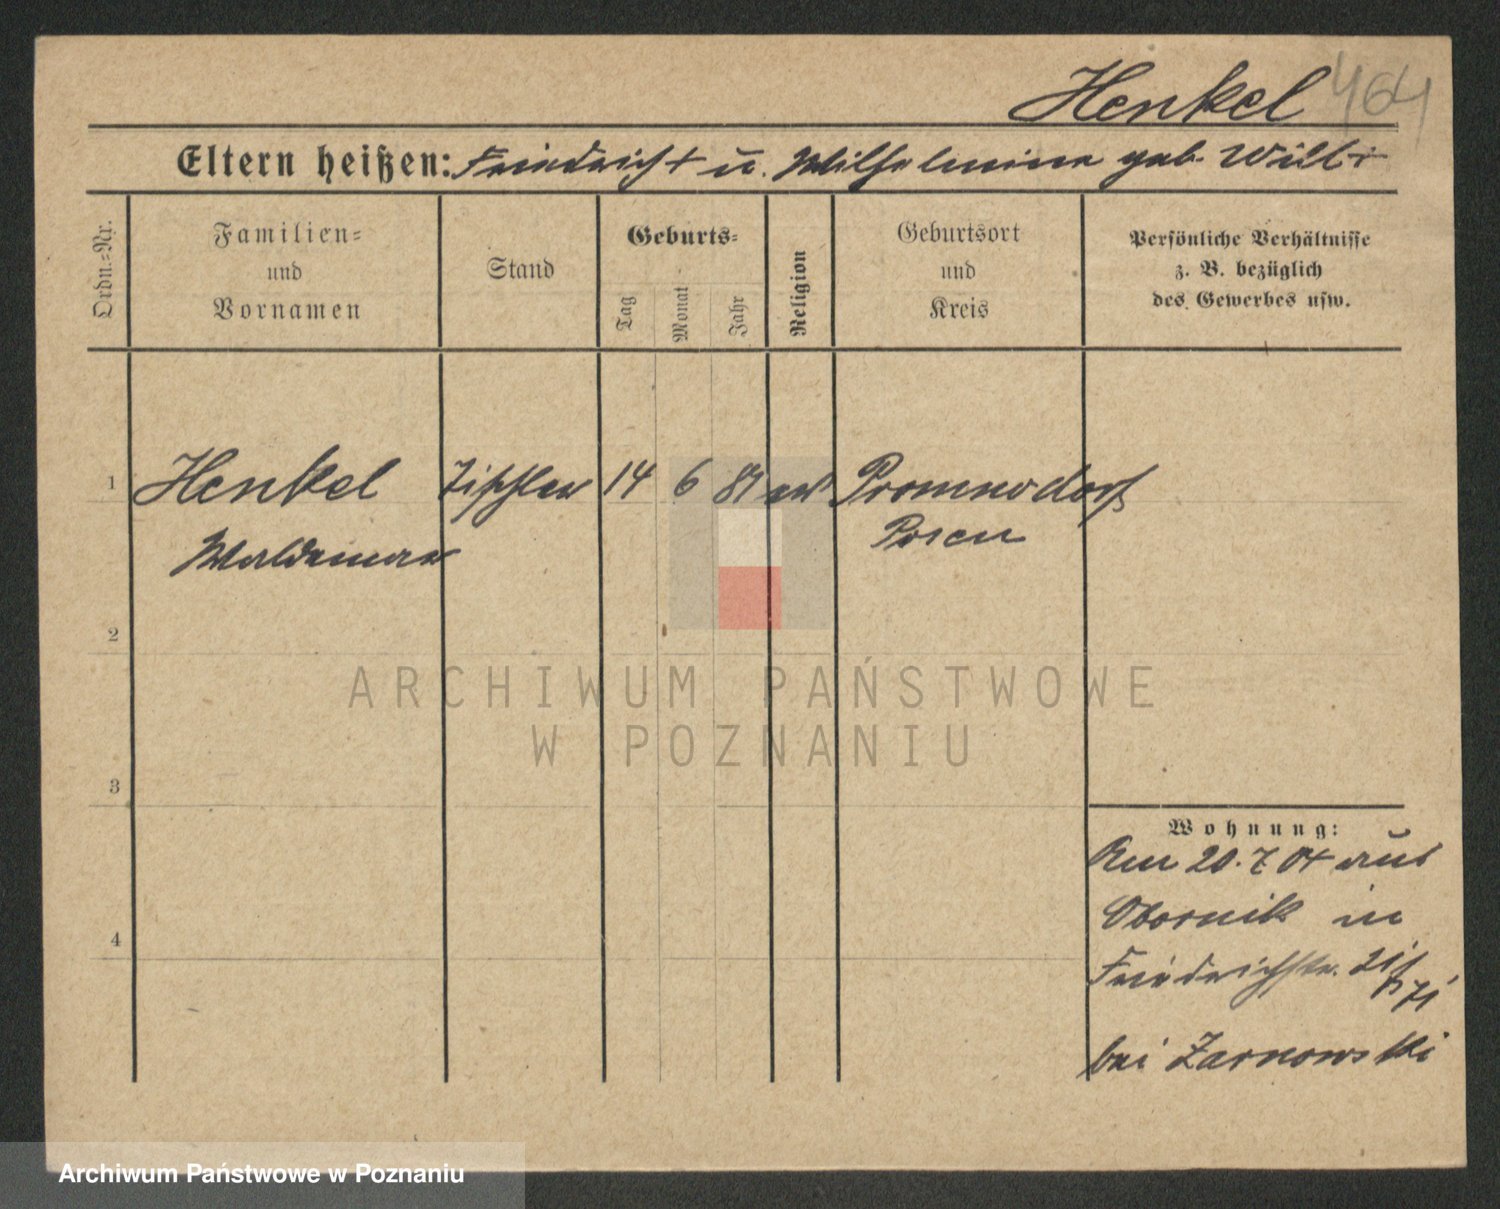 Henkel 464
Eltern heißen: Friedrich + u. Wilhelmina geb. Will +
Ordn.-Nr.
Familien-
und
Vornamen
Stand
Geburts-
Tag
Monat
Jahr
Religion
Geburtsort
und
Kreis
Persönliche Verhältnisse
z. B. bezüglich
des Gewerbes usw.
1 Henkel Tischler 14 6 81 ev Promnodorf
Waldemar Posen
2
3
4
Wohnung:
Am 20.7.04 aus
Obornik in
Friedrichstr.
bei Zarnowski
ARCHIWUM PAŃSTWOWE
W POZNANIU
Archiwum Państwowe w Poznaniu